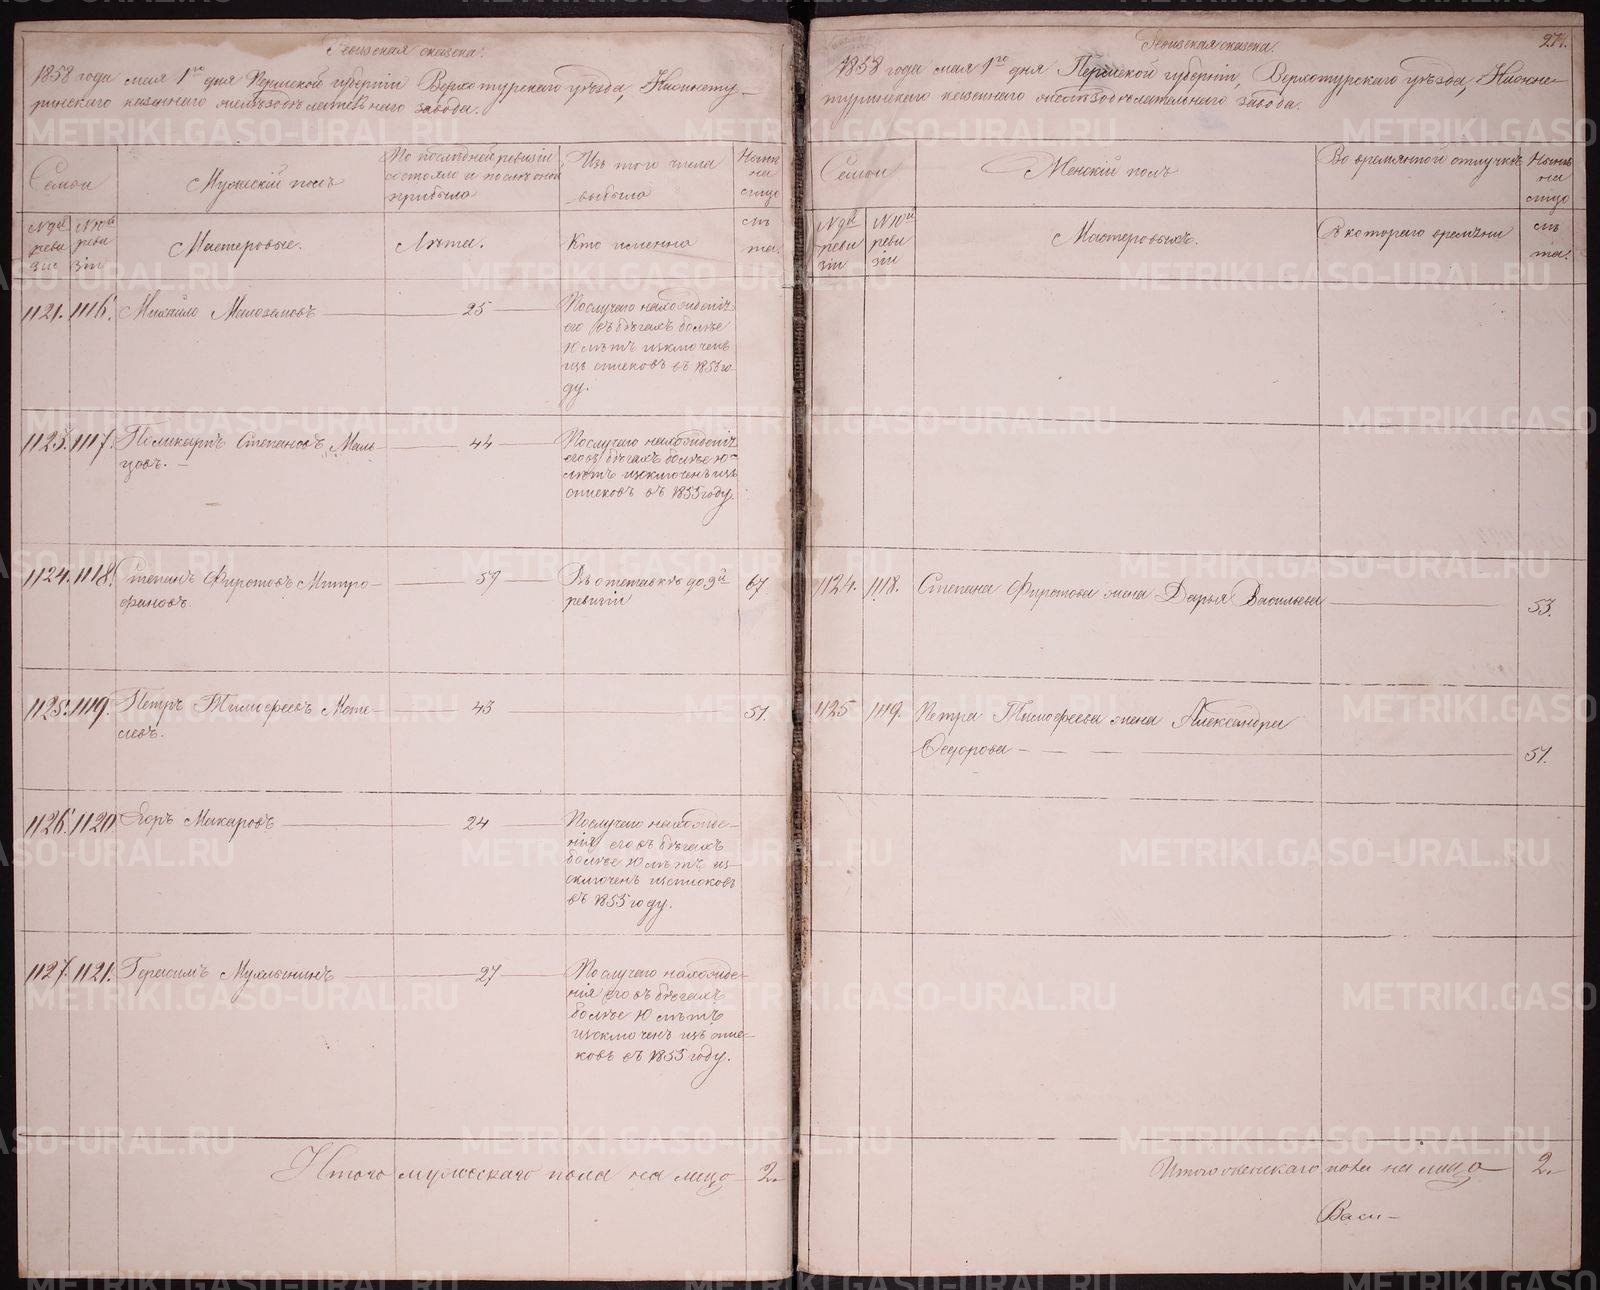 Ревизская сказка.
1858 года мая 1го дня Пермской губернiи Верхотурскаго уѣзда, Нижнету-
ринскаго казеннаго желѣзодѣлательнаго завода.
Семьи
Мужескiй полъ
По послѣдней ревизiи
состояло и послѣ оной
прибыло
Изъ того числа
выбыло
Нынѣ
на
лицо
№ 9й
реви
зiи
№ 10й
реви
зiи
Мастеровые.
Лѣта.
Кто именно
лѣ
та.
1121. 1116. Михайло Малоземовъ 25
По случаю нахожденiя
его въ бѣгахъ болѣе
10 лѣтъ исключенъ
изъ списковъ въ 1855 го
ду.
1123. 1117. Поликарпъ Степановъ Маль-
цовъ. 44
По случаю нахожденiя
его въ бѣгахъ болѣе 10
лѣтъ исключенъ изъ
списковъ въ 1855 году.
1124. 1118. Степанъ Фиротовъ Митро-
фановъ. 59
Въ отставкѣ до 9й
ревизiи
67
1125. 1119. Петръ Тимофеевъ Моте-
левъ. 43 51.
1126. 1120. Егоръ Макаровъ 24
По случаю нахожде-
нiя его въ бѣгахъ
болѣе 10 лѣтъ ис-
ключенъ изъ списковъ
въ 1855 году.
1127. 1121. Герасимъ Мухлынинъ 27
По случаю нахожде-
нiя его въ бѣгахъ
болѣе 10 лѣтъ
исключенъ изъ спис-
ковъ въ 1855 году.
Итого мужескаго пола на лицо 2.
Ревизская сказка.
274.
1858 года мая 1го дня Пермской губернiи, Верхотурскаго уѣзда, Нижне-
туринскаго казеннаго желѣзодѣлательнаго завода.
Семьи
Женскiй полъ
Во временной отлучкѣ
Нынѣ
на
лицо
№ 9й
реви
зiи
№ 10й
реви
зiи
Мастеровыхъ.
Съ котораго времени
лѣ
та.
1124. 1118. Степана Фиротова жена Дарья Васильева 53.
1125 1119. Петра Тимофеева жена Александра
Федорова 51.
Итого женскаго пола на лицо 2.
Васи-
METRIKI.GASO-URAL.RU